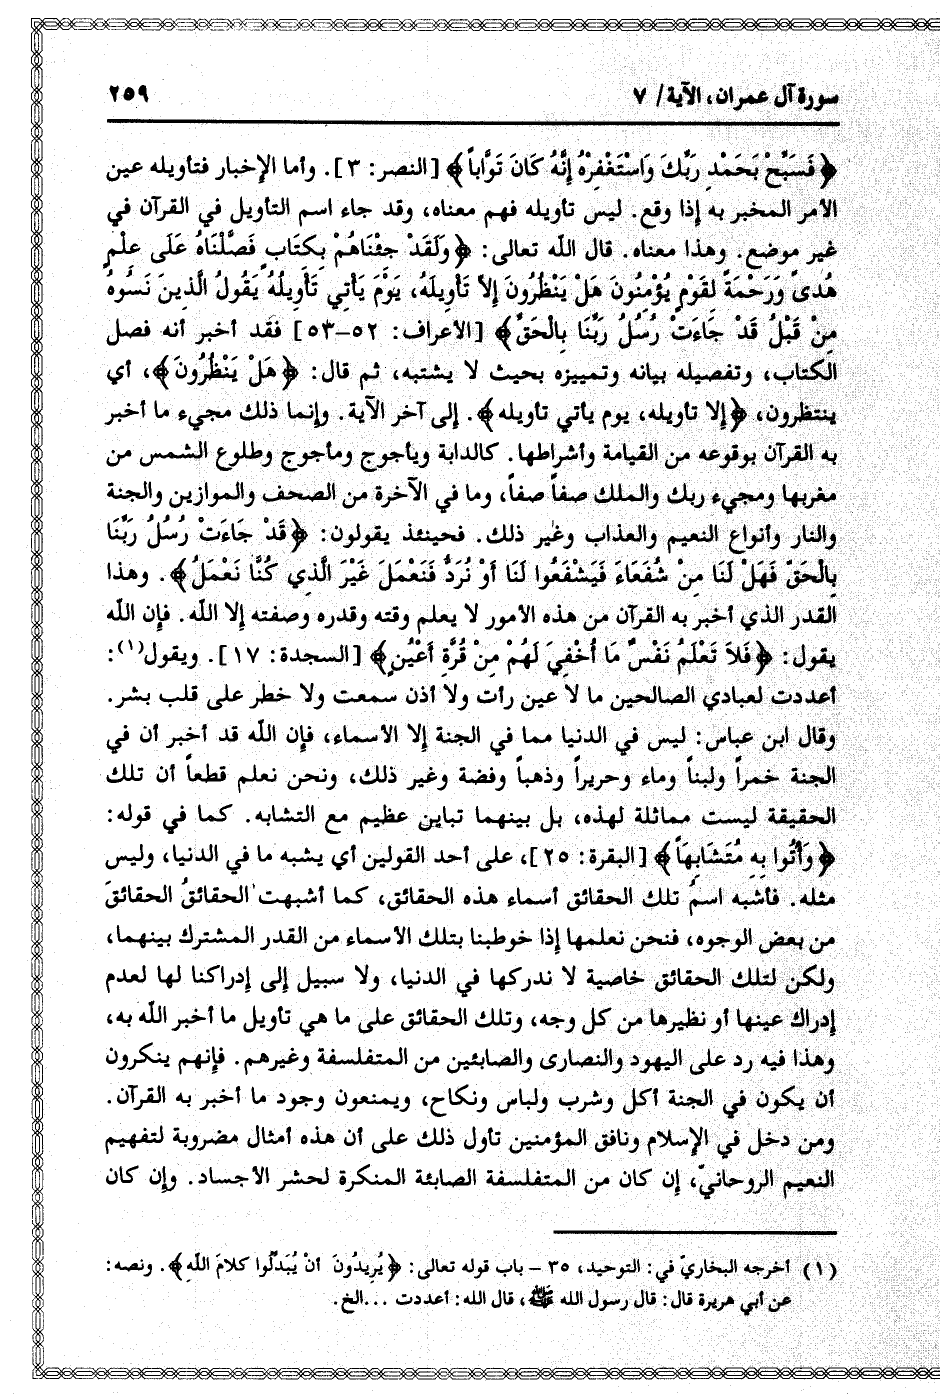 سورة آل عمران، الآية/ ٧
٢٥٩
﴿فَسَبِّحْ بَحَمْدِ رَبِّكَ وَاسْتَغْفِرْهُ إِنَّهُ كَانَ تَوَّاباً﴾ [النصر: ٣]. وأما الإخبار فتأويله عين
الأمر المخبر به إذا وقع. ليس تأويله فهم معناه، وقد جاء اسم التأويل في القرآن في
غير موضع. وهذا معناه. قال اللّه تعالى: ﴿وَلَقَدْ جِئْنَاهُمْ بِكِتَابٍ فَصَّلْنَاهُ عَلَى عِلْمٍ
هُدىً وَرَحْمَةً لِقَوْمٍ يُؤْمِنُونَ هَلْ يَنْظُرُونَ إِلاَّ تَأْوِيلَهُ، يَوْمَ يَأْتِي تَأْوِيلُهُ يَقُولُ الَّذِينَ نَسُوهُ
مِنْ قَبْلُ قَدْ جَاءَتْ رُسُلُ رَبِّنَا بِالْحَقِّ﴾ [الأعراف: ٥٢–٥٣] فقد أخبر أنه فصل
الكتاب، وتفصيله بيانه وتمييزه بحيث لا يشتبه، ثم قال: ﴿هَلْ يَنْظُرُونَ﴾، أي
ينتظرون، ﴿إلا تأويله، يوم يأتي تأويله﴾. إلى آخر الآية. وإنما ذلك مجيء ما أخبر
به القرآن بوقوعه من القيامة وأشراطها. كالدابة ويأجوج ومأجوج وطلوع الشمس من
مغربها ومجيء ربك والملك صفاً صفاً، وما في الآخرة من الصحف والموازين والجنة
والنار وأنواع النعيم والعذاب وغير ذلك. فحينئذ يقولون: ﴿قَدْ جَاءَتْ رُسُلُ رَبِّنَا
بِالْحَقِّ فَهَلْ لَنَا مِنْ شُفَعَاءَ فَيَشْفَعُوا لَنَا أَوْ نُرَدُّ فَنَعْمَلَ غَيْرَ الَّذِي كُنَّا نَعْمَلُ﴾. وهذا
القدر الذي أخبر به القرآن من هذه الأمور لا يعلم وقته وقدره وصفته إلا اللّه. فإن اللّه
يقول: ﴿فَلاَ تَعْلَمُ نَفْسٌ مَا أُخْفِيَ لَهُمْ مِنْ قُرَّةِ أَعْيُنٍ﴾ [السجدة: ١٧]. ويقول(١):
أعددت لعبادي الصالحين ما لا عين رأت ولا أذن سمعت ولا خطر على قلب بشر.
وقال ابن عباس: ليس في الدنيا مما في الجنة إلا الأسماء، فإن اللّه قد أخبر أن في
الجنة خمراً ولبناً وماء وحريراً وذهباً وفضة وغير ذلك، ونحن نعلم قطعاً أن تلك
الحقيقة ليست مماثلة لهذه، بل بينهما تباين عظيم مع التشابه. كما في قوله:
﴿وَأُتُوا بِهِ مُتَشَابِهاً﴾ [البقرة: ٢٥]، على أحد القولين أي يشبه ما في الدنيا، وليس
مثله. فأشبه اسمُ تلك الحقائق أسماء هذه الحقائق، كما أشبهت الحقائقُ الحقائقَ
من بعض الوجوه، فنحن نعلمها إذا خوطبنا بتلك الأسماء من القدر المشترك بينهما،
ولكن لتلك الحقائق خاصية لا ندركها في الدنيا، ولا سبيل إلى إدراكنا لها لعدم
إدراك عينها أو نظيرها من كل وجه، وتلك الحقائق على ما هي تأويل ما أخبر اللّه به،
وهذا فيه رد على اليهود والنصارى والصابئين من المتفلسفة وغيرهم. فإنهم ينكرون
أن يكون في الجنة أكل وشرب ولباس ونكاح، ويمنعون وجود ما أخبر به القرآن.
ومن دخل في الإسلام ونافق المؤمنين تأول ذلك على أن هذه أمثال مضروبة لتفهيم
النعيم الروحانيّ، إن كان من المتفلسفة الصابئة المنكرة لحشر الأجساد. وإن كان
(١) أخرجه البخاريّ في: التوحيد، ٣٥ – باب قوله تعالى: ﴿يُرِيدُونَ أنْ يُبَدِّلُوا كلامَ اللّهِ﴾. ونصه:
عن أبي هريرة قال: قال رسول الله ﷺ، قال الله: أعددت ...الخ.